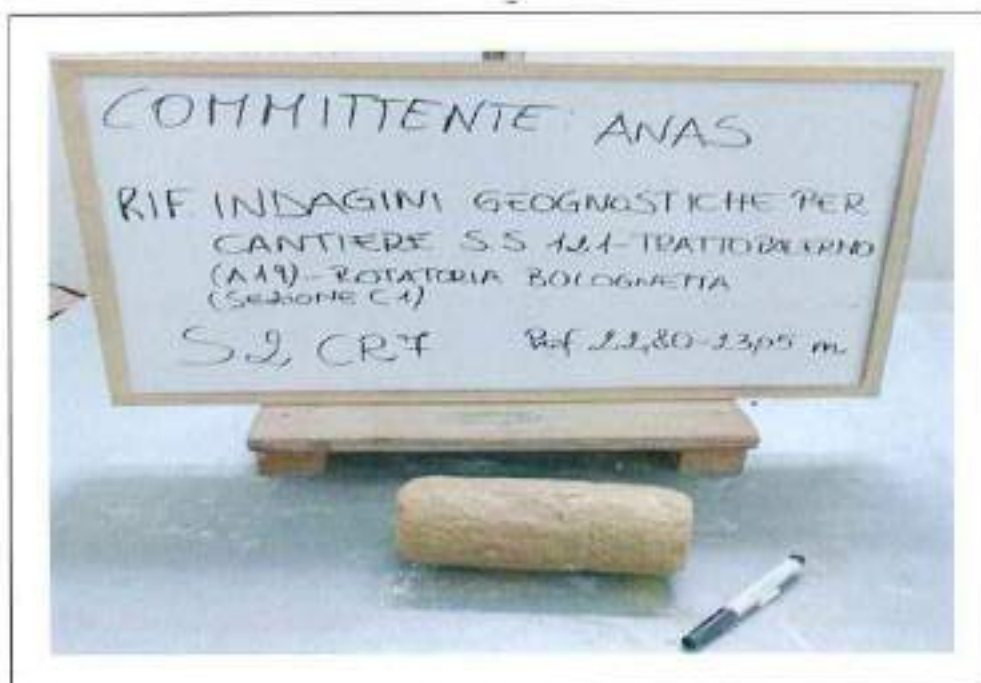 COMMITTENTE: ANAS
RIF. INDAGINI GEOGNOSTICHE PER
CANTIERE S.S 121-TRATTO PALERMO
(A19)-ROTATORIA BOLOGNETTA
(SEZIONE C1)
S2 CR7 Prof 22,80-23,05 m